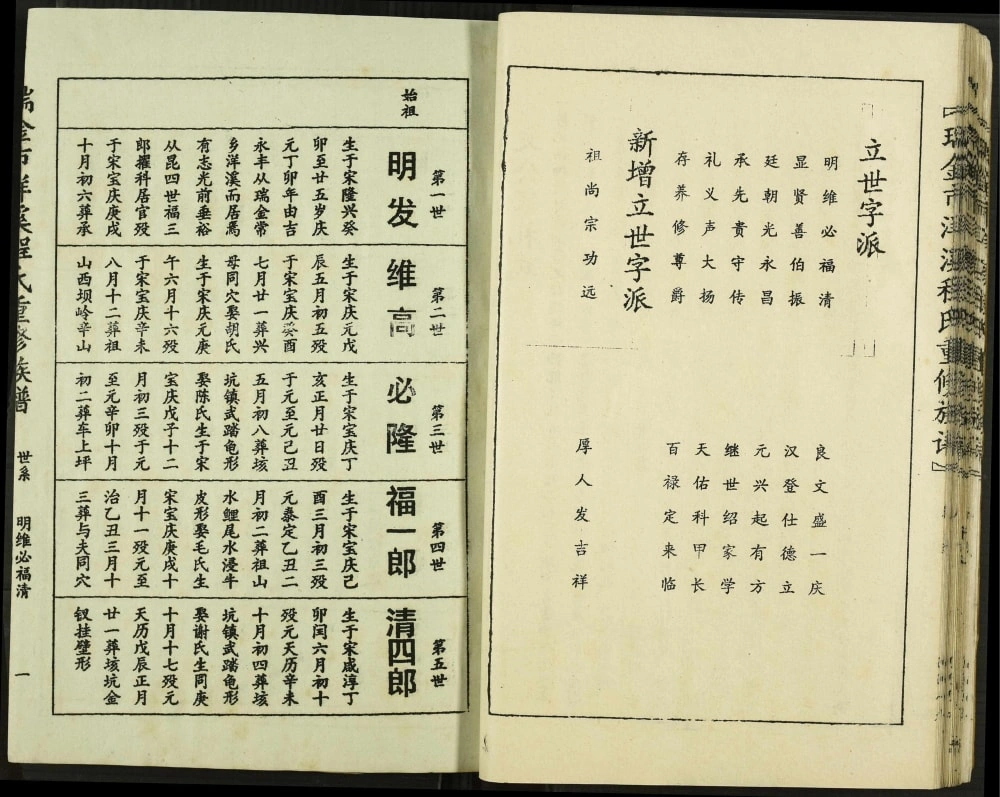 立世字派
明维必福清
良文盛一庆
显贤善伯振
汉登仕德立
廷朝光永昌
元兴起有方
承先贵守传
继世绍家学
礼义声大扬
天佑科甲长
存养修尊爵
百禄定来临
新增立世字派
祖尚宗功远
厚人发吉祥
始祖
第一世
明发
生于宋隆兴癸
卯至廿五岁庆
元丁卯年由吉
永丰从瑞金常
乡洋溪而居焉
有志光前垂裕
从昆四世福三
郎擢科居官殁
于宋宝庆庚戌
十月初六葬承
第二世
维高
生于宋庆元戊
辰五月初五殁
于宋宝庆癸酉
七月廿一葬兴
母同穴娶胡氏
生于宋庆元庚
午六月十六殁
于宋宝庆辛未
八月十二葬祖
山西坝岭辛山
第三世
必隆
生于宋宝庆丁
亥正月廿日殁
于元至元己丑
五月初八葬垓
坑镇武踏龟形
娶陈氏生于宋
宝庆戊子十二
月初三殁于元
至元辛卯十月
初二葬车上坪
第四世
福一郎
生于宋宝庆己
酉三月初三殁
元泰定乙丑二
月初二葬祖山
水鲤尾水浸牛
皮形娶毛氏生
宋宝庆庚戌十
月十一殁元至
治乙丑三月十
三葬与夫同穴
第五世
清四郎
生于宋咸淳丁
卯闰六月初十
殁元天历辛未
十月初四葬垓
坑镇武踏龟形
娶谢氏生同庚
十月十七殁元
天历戊辰正月
廿一葬垓坑金
钗挂壁形
世系
明维必福清
一